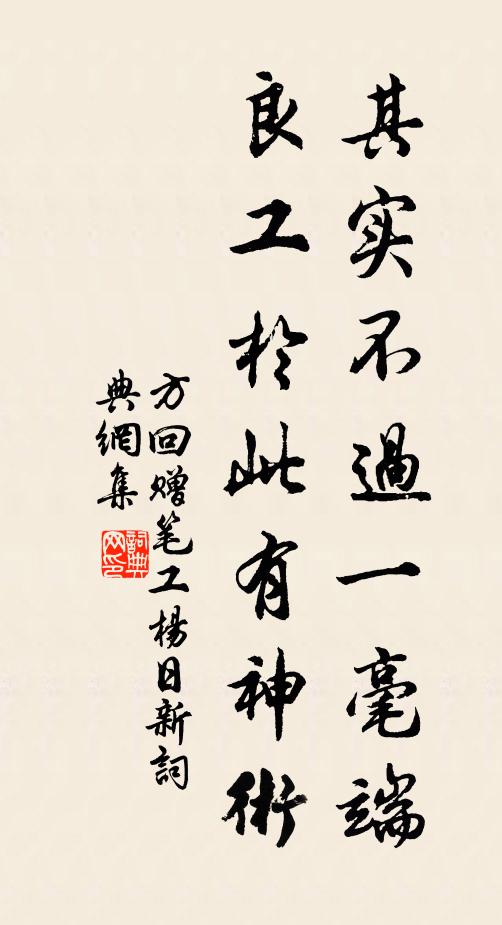 其实不過一毫端
良工於此有神術
方回赠笔工楊日新詞
典網集
詞典網印